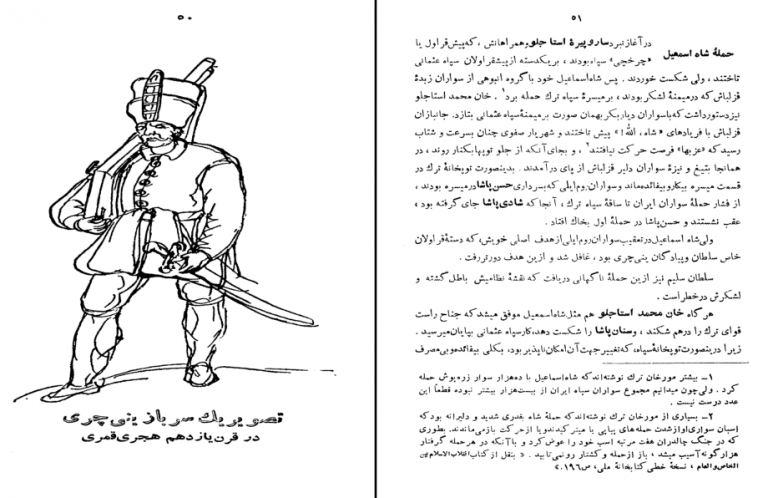 ۵۰
تصویر یك سرباز ینی چری
در قرن یازدهم هجری قمری
۵۱
حملهٔ شاه اسمعیل
در آغاز نبرد ساروپیرهٔ استاجلو و همراهانش ، که پیش قراول یا
«چرخچی» سپاه بودند ، بریکدسته از پیشقراولان سپاه عثمانی
تاختند ، ولی شکست خوردند . پس شاه اسماعیل خود با گروه انبوهی از سواران زبدهٔ
قزلباش که درمیمنهٔ لشکر بودند ، برمیسرهٔ سپاه ترك حمله برد۱ . خان محمد استاجلو
نیز دستور داشت که با سواران دیاربکر بهمان صورت برمیمنهٔ سپاه عثمانی بتازد . جانبازان
قزلباش با فریادهای « شاه ، الله ! » پیش تاختند و شهریار صفوی چنان بسرعت و شتاب
رسید که «عزبها» فرصت حرکت نیافتند۲ ، و بجای آنکه از جلو توپها بکنار روند ، در
همانجا بتیغ و نیزهٔ سواران دلیر قزلباش از پای درآمدند . بدینصورت توپخانهٔ ترك در
قسمت میسره بیکار و بیفائده ماند و سواران روم ایلی که بسرداری حسن پاشا درمیسره بودند ،
از فشار حملهٔ سواران ایران تا ساقهٔ سپاه ترك ، آنجا که شادی پاشا جای گرفته بود ،
عقب نشستند و حسن پاشا در حملهٔ اول بخاك افتاد .
ولی شاه اسماعیل درتعقیب سواران روم ایلی از هدف اصلی خویش، که دستهٔ قراولان
خاص سلطان و پیادگان ینی چری بود ، غافل شد و ازین هدف دورتر رفت .
سلطان سلیم نیز ازین حملهٔ ناگهانی دریافت که نقشهٔ نظامیش باطل گشته و
لشکرش درخطر است .
هرگاه خان محمد استاجلو هم مثل شاه اسمعیل موفق میشد که جناح راست
قوای ترك را درهم شکند ، وسنان پاشا را شکست دهد، کار سپاه عثمانی بپایان میرسید .
زیرا درینصورت توپخانهٔ سپاه، که تغییر جهت آن امکان ناپذیر بود، بکلی بیفائده و بی مصرف
۱ـ بیشتر مورخان ترك نوشته اند که شاه اسماعیل با ده هزار سوار زره پوش حمله
کرد . ولی چون میدانیم مجموع سواران سپاه ایران از بیست هزار بیشتر نبوده قطعاً این
عدد درست نیست .
۲ـ بسیاری از مورخان ترك نوشته اند که حملهٔ شاه بقدری شدید و دلیرانه بود که
اسبان سواری او از شدت حمله های پیاپی با میترکیدند و یا از حرکت بازمی ماندند. بطوری
که در جنگ چالدران هفت مرتبه اسب خود را عوض کرد و با آنکه در هر حمله گرفتار
هزار گونه آسیب میشد ، باز از حمله و کشتار رو نمی تابید . « بنقل از کتاب انقلاب الاسلام بین
الخاص والعام ، نسخهٔ خطی کتابخانهٔ ملی، ص۱۹۶.»